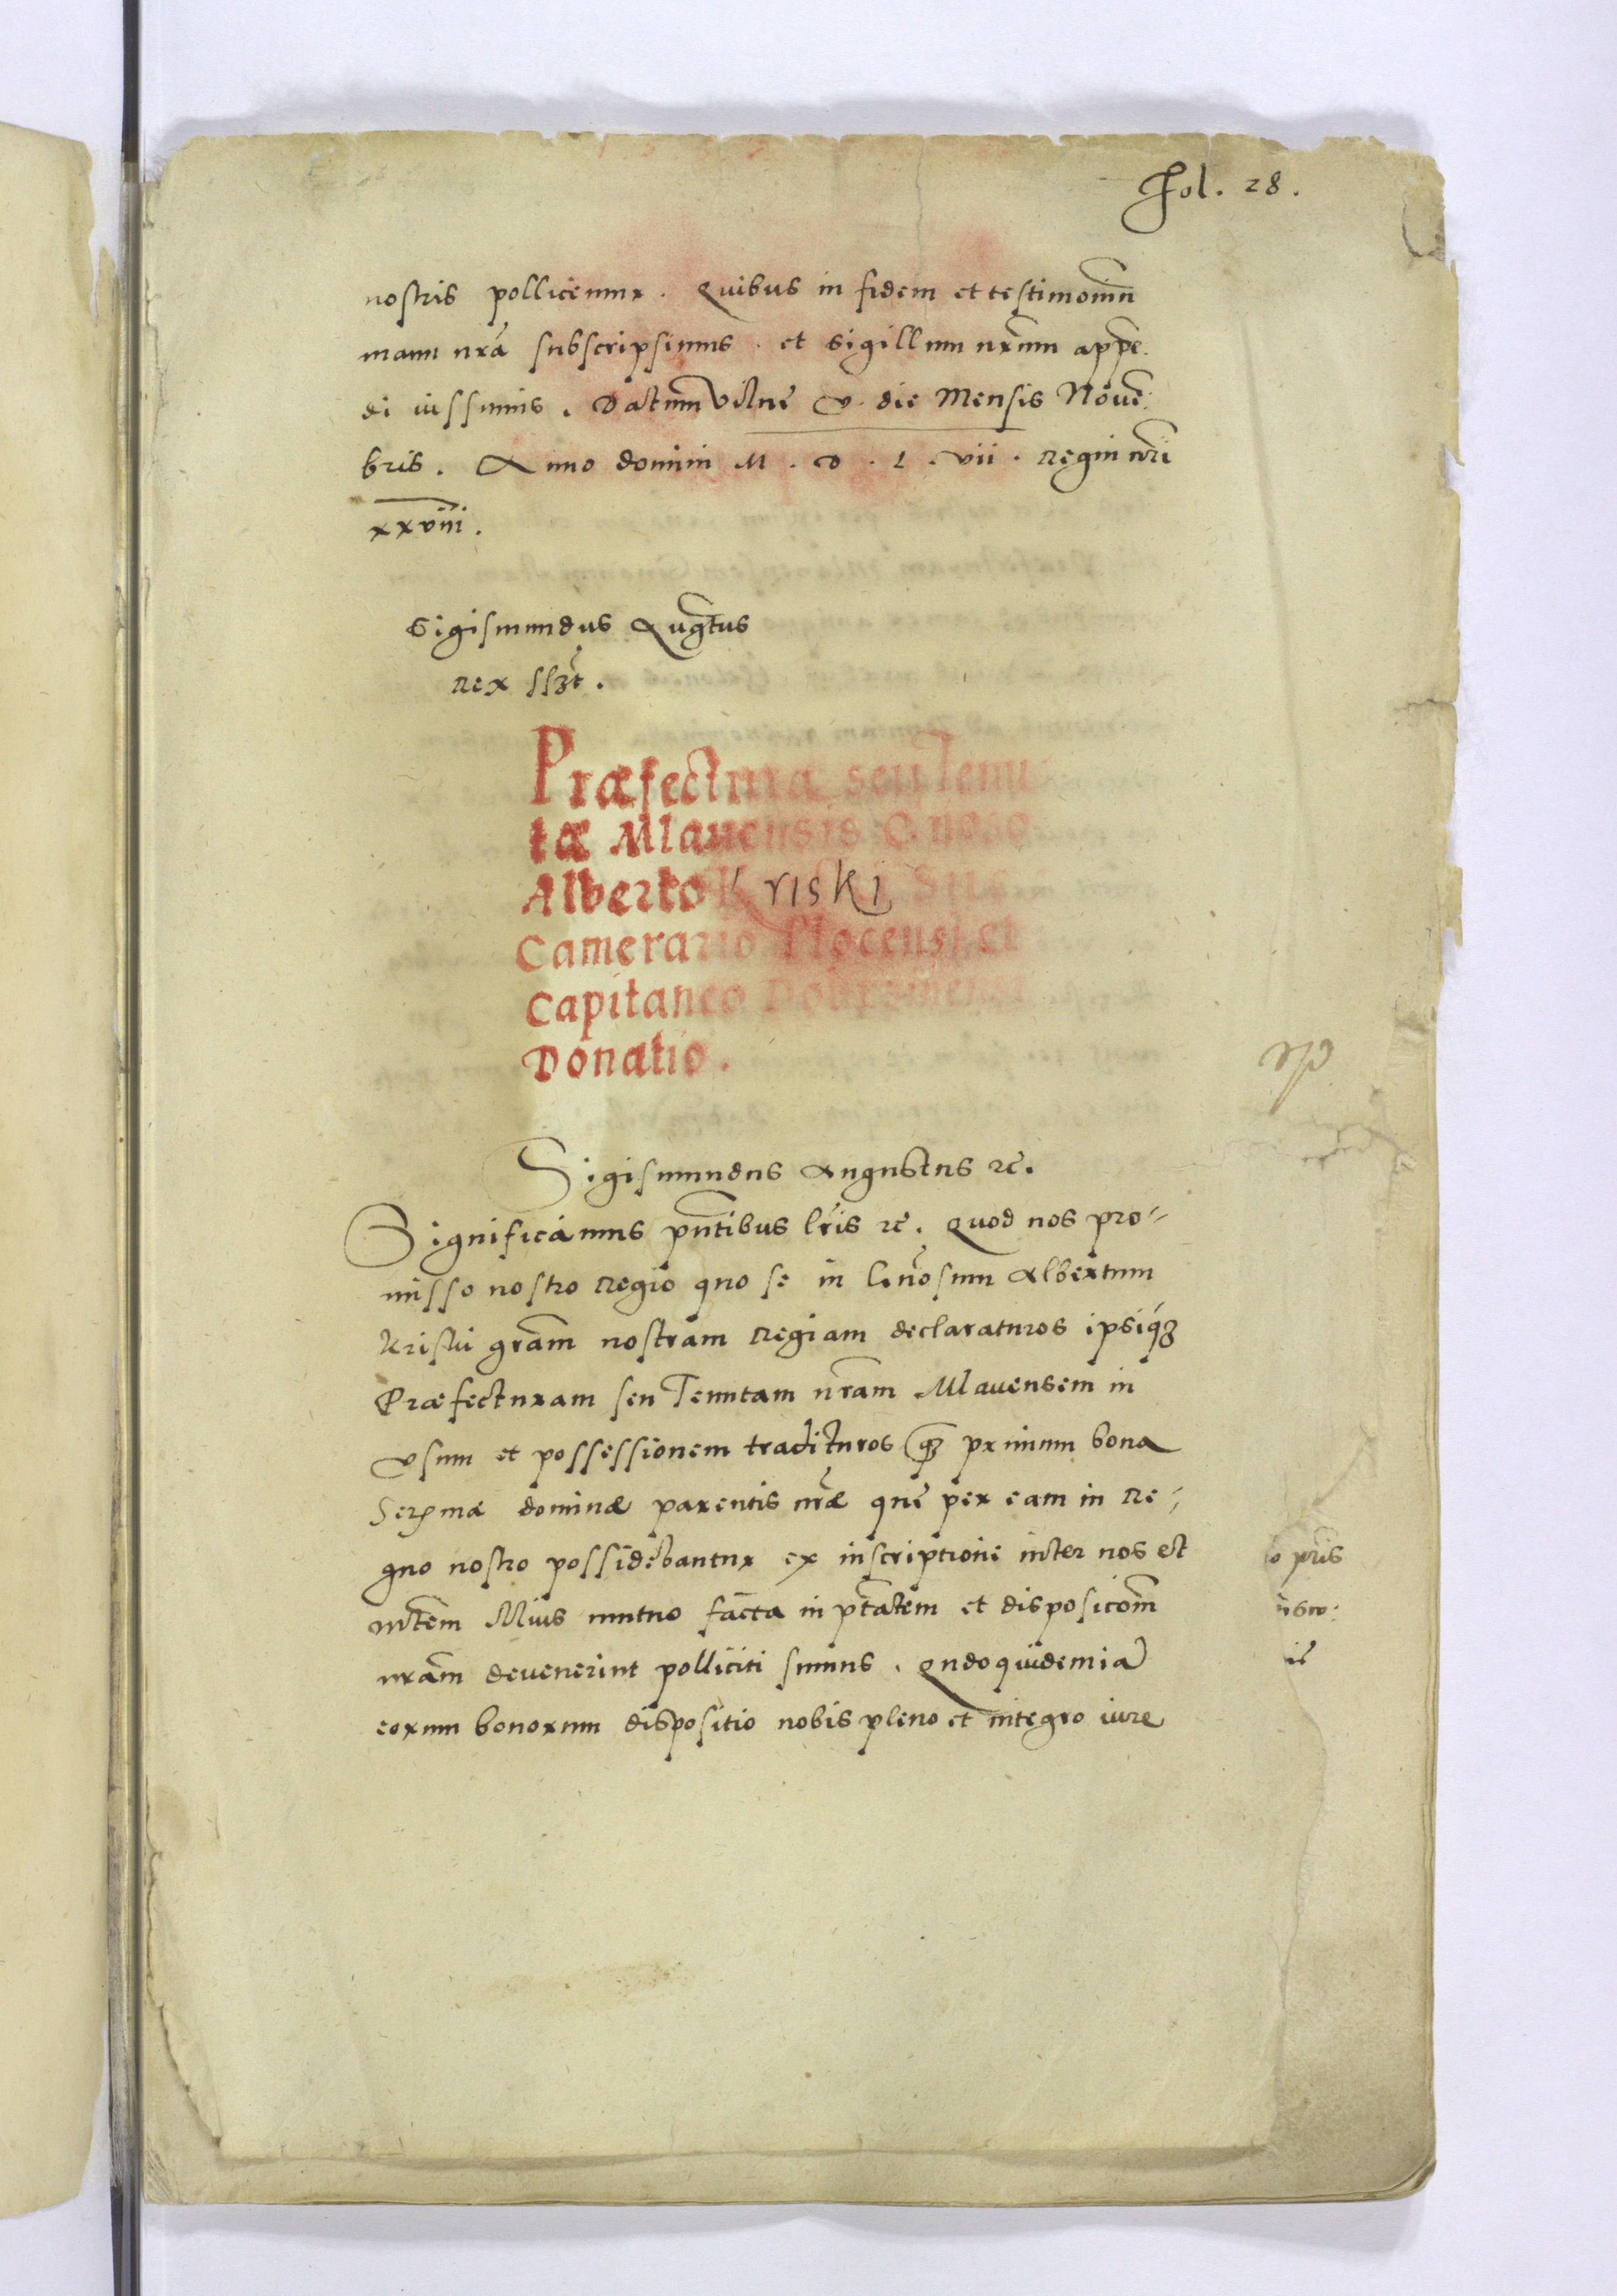 Fol. 28.
nostris pollicemur. Quibus in fidem et testimoniũ
manu nrã subscripsimus. et sigillum nr̃um appẽ.
di iussimus. Datum Vilnę v. die Mensis Novẽ:
bris. Anno domini M. D. L. vii. Regni nr̃i
xxviii.
Sigismundus Augtus
Rex sszt.
Præfectura seu Tenu
tæ Mlavensis G. noso
Alberto Kriski Suc
Camerario Plocensi et
Capitaneo Dobrzinensi
Donatio.
Sigismundus Augustus zc̃.
Significamus pñtibus lr̃is zc̃. Quod nos pro-
misso nostro Regio quo se in Gñosum Albertum
Kriski gr̃am nostram Regiam declaraturos ipsiq́ꝫ
Præfecturam seu Tenutam nr̃am Mlavensem in
vsum et possessionem tradituros qꝫ primum bona
Serma dominæ parentis nr̃æ quę per eam in Re-
gno nostro possidebantur ex inscriptione inter nos et
mtem Illius mutuo facta in ptãtem et disposicõm
nr̃am devenerint polliciti sumus. Qũdoquidem ia
eorum bonorum dispositio nobis pleno et integro iure
o pris
ię